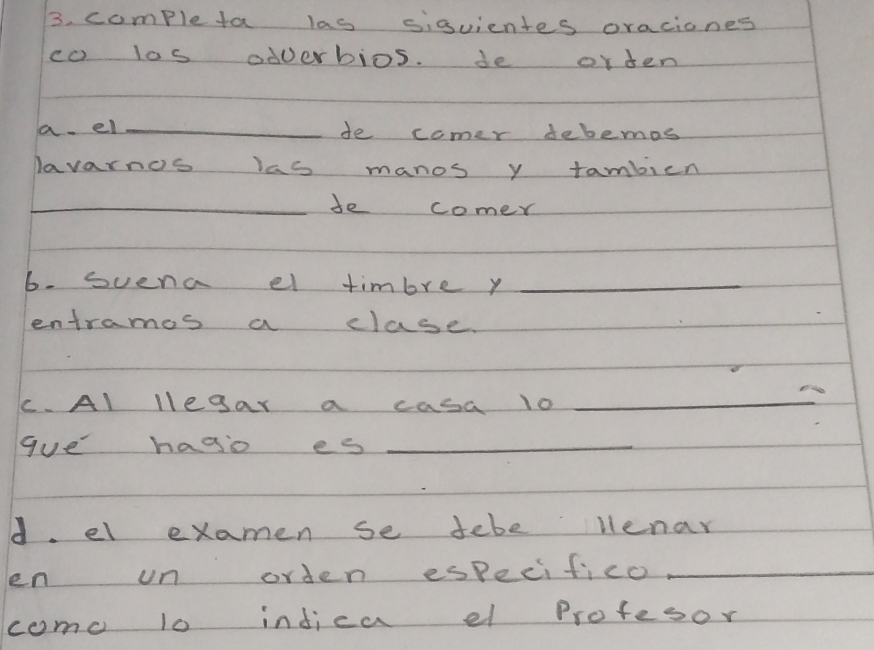 3. completa las siguientes oraciones
co los adverbios. de orden
a. el __________ de comer debemos
lavarnos las manos y tambien
__________ de comer
b. Suena el timbre y __________
entramos a clase.
c. Al llegar a casa lo __________
qué hago es __________
d. el examen se debe llenar
en un orden especifico. __________
como lo indica el Profesor